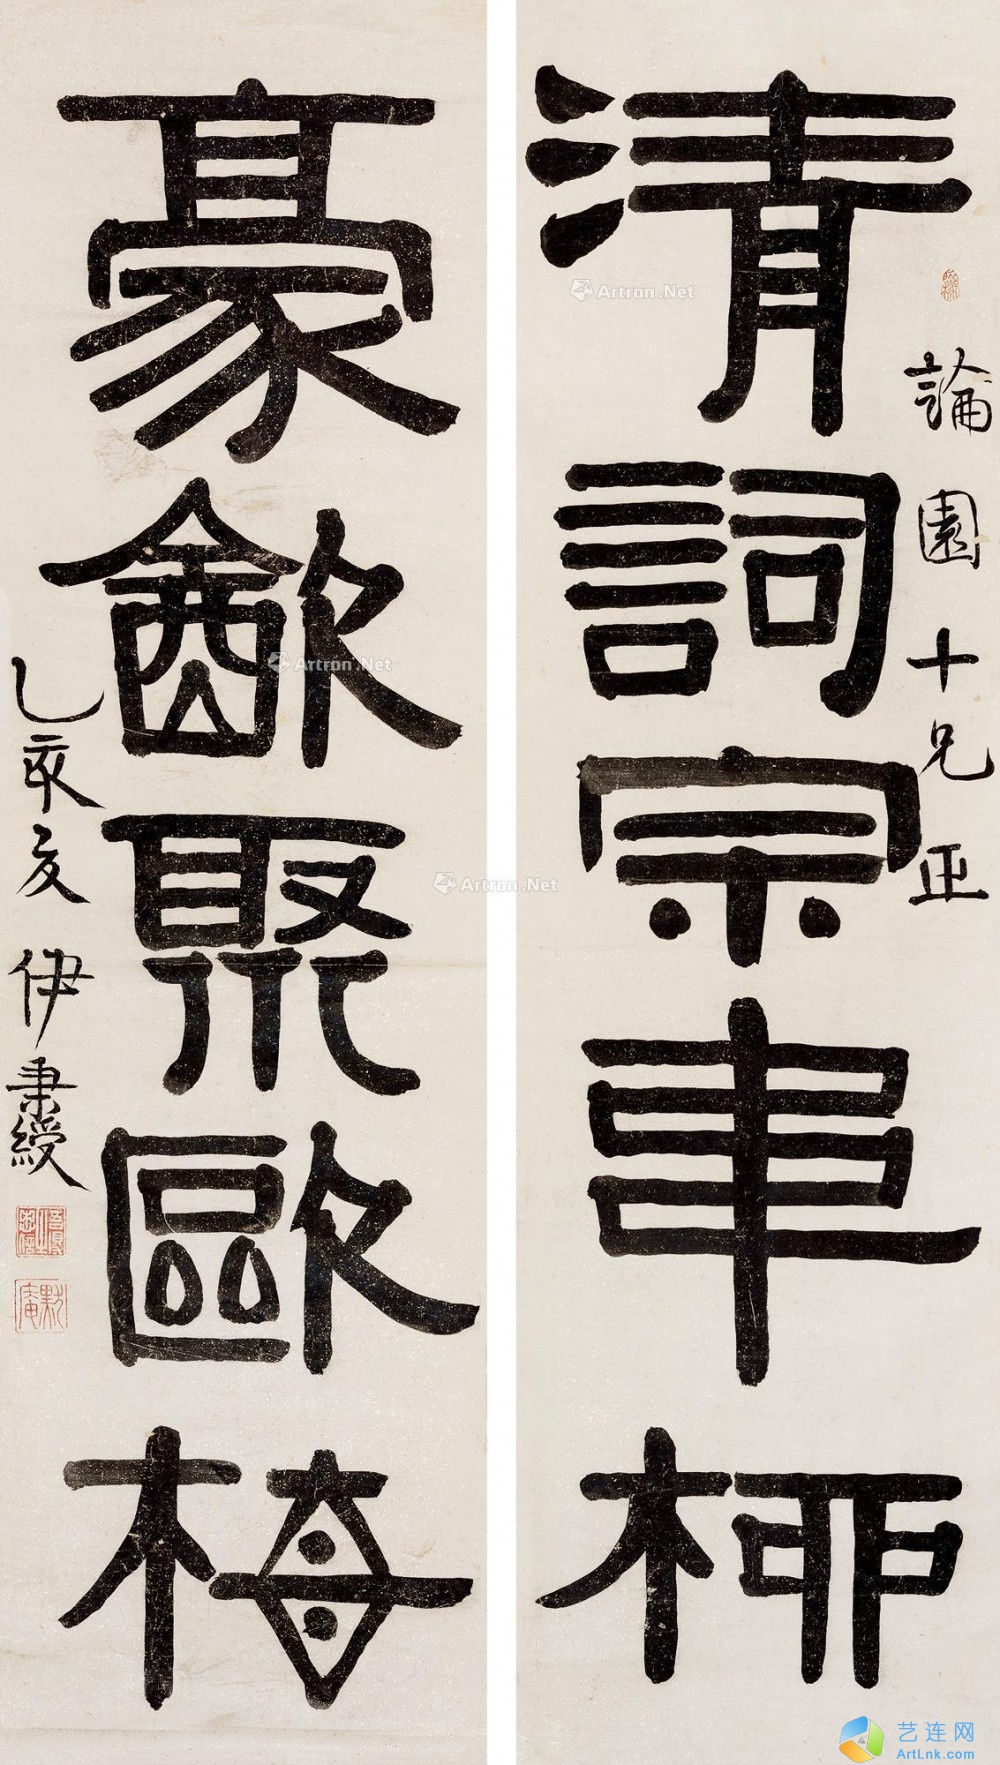 清詞宗韋柳
論園十兄正
豪飲聚歐梅
乙亥夏 伊秉綬
默庵
Artron.Net
Artron.Net
Artron.Net
艺连网
ArtLnk.com